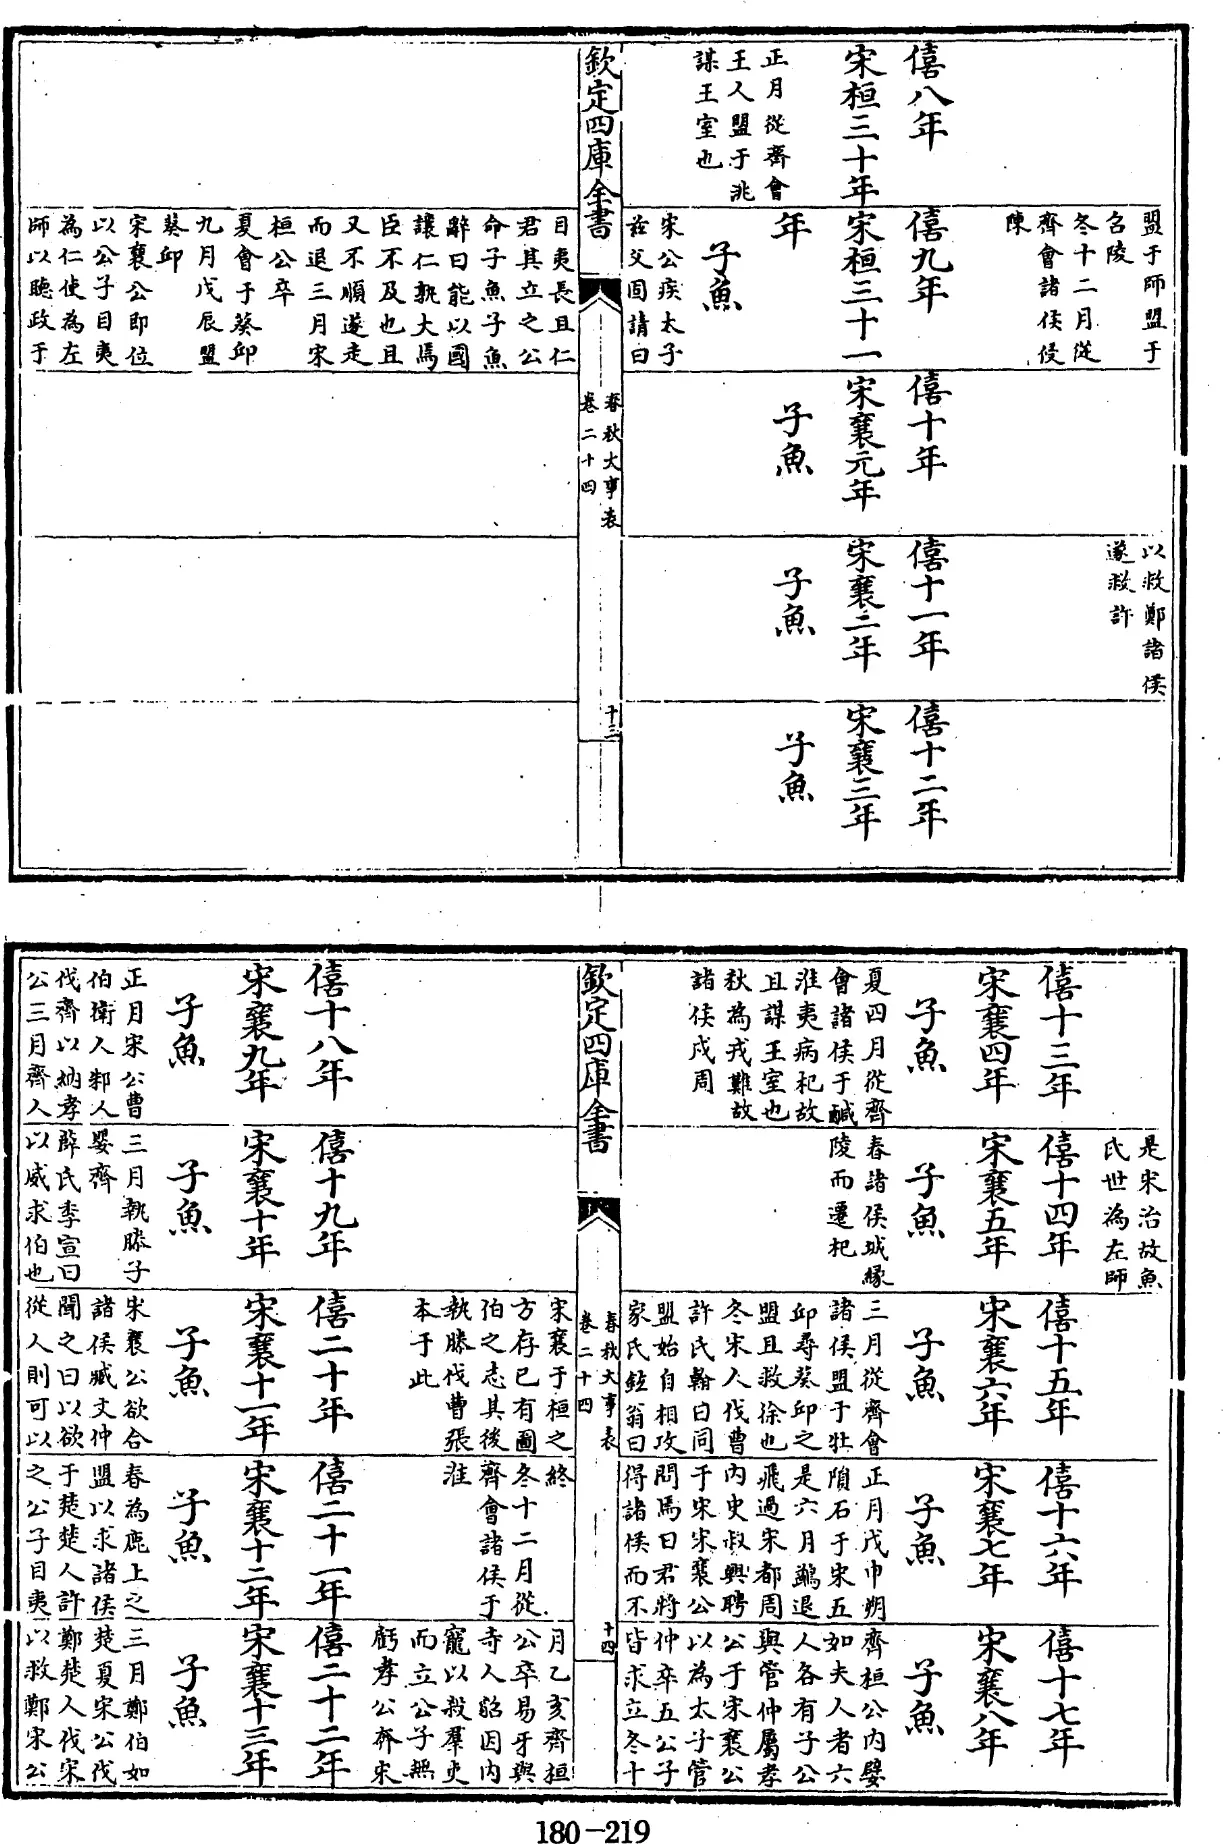 僖八年
宋桓三十年
正月從齊會
王人盟于洮
謀王室也
盟于師盟于
召陵
冬十二月從
齊會諸侯侵
陳
僖九年
宋桓三十一
年
子魚
宋公疾太子
茲父固請曰
僖十年
宋襄元年
子魚
以救鄭諸侯
遂救許
僖十一年
宋襄二年
子魚
僖十二年
宋襄三年
子魚
欽定四庫全書
春秋大事表
卷二十四
十三
目夷長且仁
君其立之公
命子魚子魚
辭曰能以國
讓仁孰大焉
臣不及也且
又不順遂走
而退三月宋
桓公卒
夏會于葵邱
九月戊辰盟
葵邱
宋襄公即位
以公子目夷
為仁使為左
師以聽政于
僖十三年
宋襄四年
子魚
夏四月從齊
會諸侯于鹹
淮夷病杞故
且謀王室也
秋為戎難故
諸侯戍周
是宋治故魚
氏世為左師
僖十四年
宋襄五年
子魚
春諸侯城緣
陵而遷杞
僖十五年
宋襄六年
子魚
三月從齊會
諸侯盟于牡
邱尋葵邱之
盟且救徐也
冬宋人伐曹
許氏翰曰同
盟始自相攻
家氏鉉翁曰
僖十六年
宋襄七年
子魚
正月戊申朔
隕石于宋五
是六月鷁退
飛過宋都周
內史叔興聘
于宋宋襄公
問焉曰君將
得諸侯而不
僖十七年
宋襄八年
子魚
齊桓公內嬖
如夫人者六
人各有子公
與管仲屬孝
公于宋襄公
以為太子管
仲卒五公子
皆求立冬十
欽定四庫全書
春秋大事表
卷二十四
十四
僖十八年
宋襄九年
子魚
正月宋公曹
伯衛人邾人
伐齊以納孝
公三月齊人
僖十九年
宋襄十年
子魚
三月執滕子
嬰齊
薛氏季宣曰
以威求伯也
宋襄于桓之
方存已有圖
伯之志其後
執滕伐曹張
本于此
僖二十年
宋襄十一年
子魚
宋襄公欲合
諸侯臧文仲
聞之曰以欲
從人則可以
終
冬十二月從
齊會諸侯于
淮
僖二十一年
宋襄十二年
子魚
春為鹿上之
盟以求諸侯
于楚楚人許
之公子目夷
月乙亥齊桓
公卒易牙與
寺人貂因內
寵以殺羣吏
而立公子無
虧孝公奔宋
僖二十二年
宋襄十三年
子魚
三月鄭伯如
楚夏宋公伐
鄭楚人伐宋
以救鄭宋公
180-219